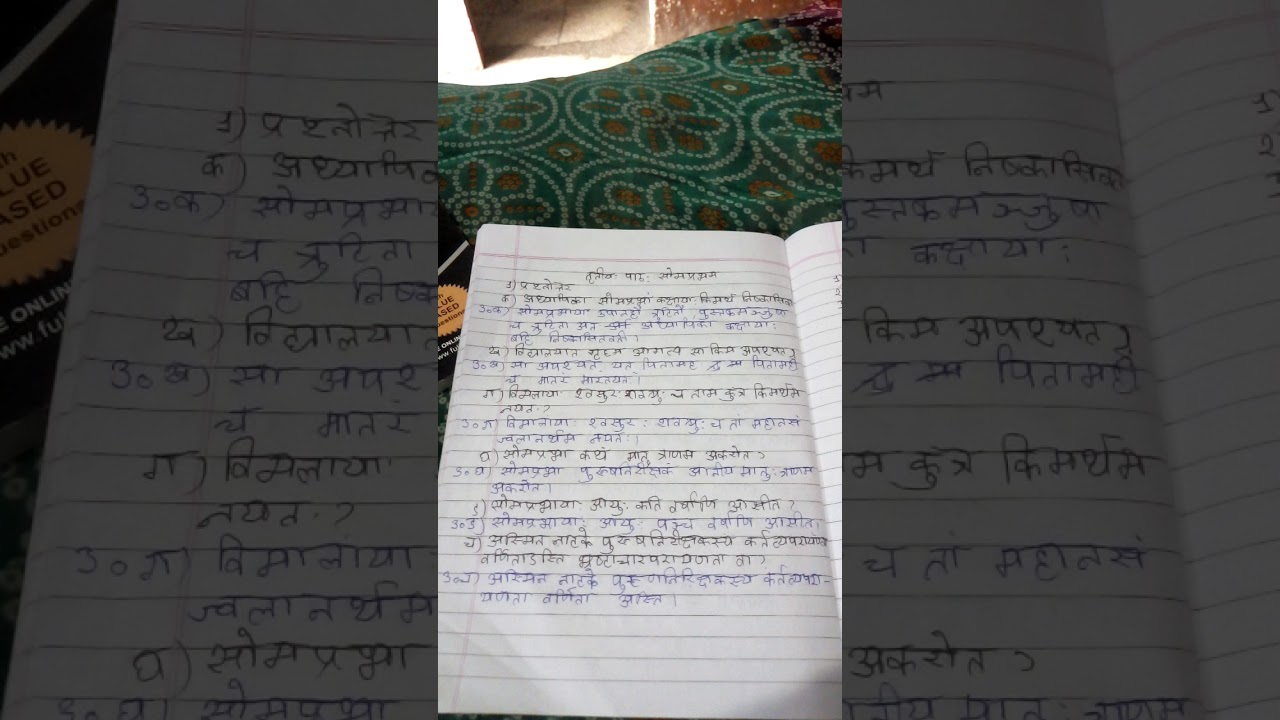 तृतीयः पाठः सोमप्रभम
1) प्रश्नोत्तर
क) अध्यापिका सोमप्रभां कक्षायाः किमर्थं निष्कासिता
उ०क) सोमप्रभाया उपानहौ त्रुटितौ, पुस्तकमञ्जुषा
च त्रुटिता अत अध्यापिका कक्षायाः
बहि निष्कासितवती।
ख) विद्यालयात गृहम आगत्य सा किम अपश्यत?
उ०ख) सा अपश्यत यत पितामह पितामही
च मातरं मारतयतः।
ग) विमलायाः श्वसुर श्वश्रु च ताम कुत्र किमर्थम
नयतः?
उ०ग) विमालायाः श्वसुरः श्वश्रुः च तां महानसं
ज्वलानर्थम नयतः।
घ) सोमप्रभा कथं मातु त्राणम अकरोत?
उ०घ) सोमप्रभा पुरुषनिरीक्षकं आनीय मातुः त्राणम
अकरोत।
ङ) सोमप्रभायाः आयुः कति वर्षाणि आसीत?
उ०ङ) सोमप्रभायाः आयुः पञ्च वर्षाणि आसीत।
च) अस्मिन नाटके पुरुषनिरीक्षकस्य कर्तव्यपरायणता
वर्णिताऽस्ति भ्रष्टाचारपरायणता वा?
उ०च) अस्मिन नाटके पुरुषनिरिक्षकस्य कर्तव्यपरा-
यणता वर्णिता अस्ति।
VALUE
BASED
Questions
ONLINE
www.fu